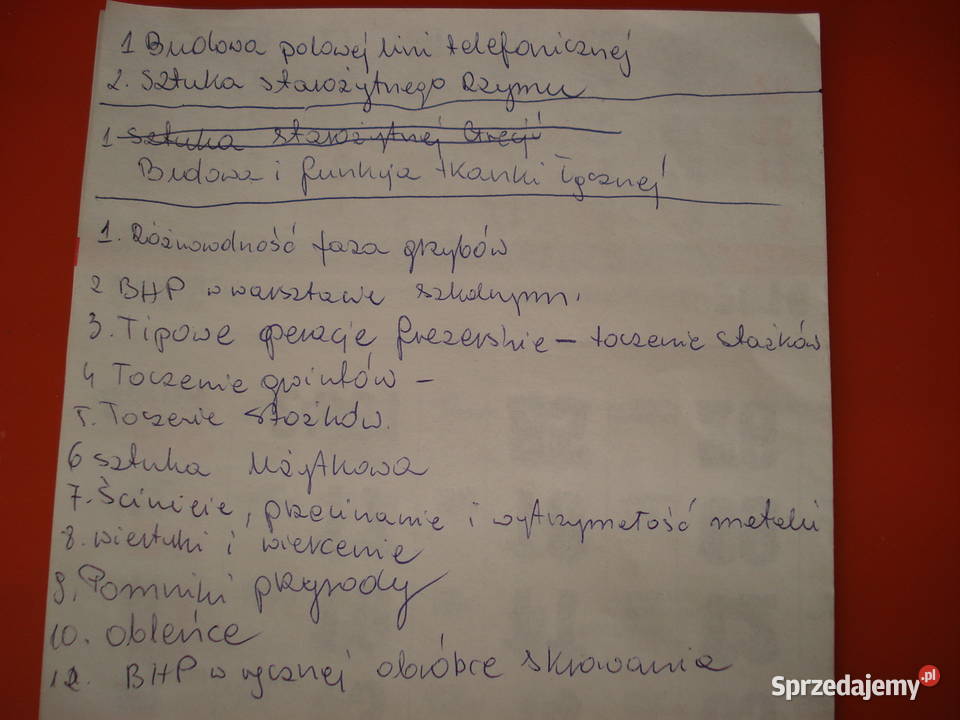 1 Budowa polowej lini telefonicznej
2. Sztuka starożytnego Rzymu
1 Sztuka starożytnej Grecji
Budowa i funkcja tkanki łącznej
1. Różnorodność faza grzybów
2 BHP w warsztacie szkolnym.
3. Tipowe operacje frezerskie – toczenie stożków
4 Toczenie gwintów –
5. Toczenie stożków.
6 sztuka użytkowa
7. Ścinicie, przecinanie i wytrzymałość metalu
8. wiertuki i wiercenie
9. Pomniki przyrody
10. obleńce
12. BHP w ręcznej obróbce skrawania
Sprzedajemy.pl